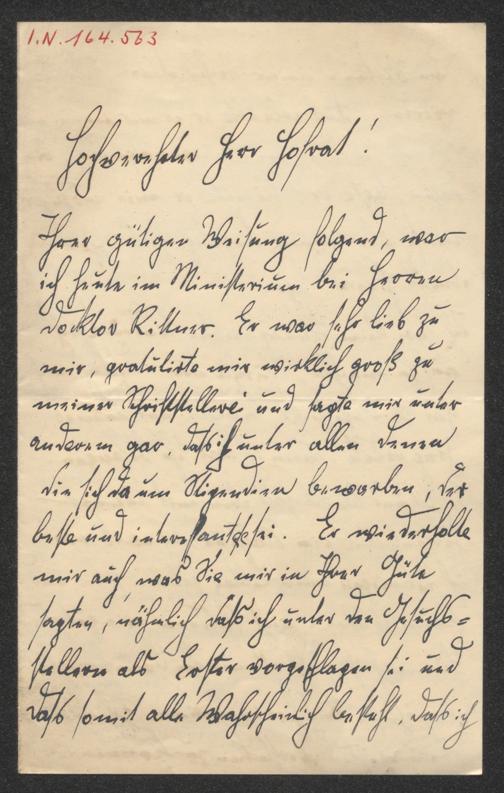 I.N. 164.563
Hochverehrter Herr Hofrat!
Ihrer gütigen Weisung folgend, war
ich heute im Ministerium bei Herren
Docktor Rittner. Er war sehr lieb zu
mir, gratulirte mir wirklich groß zu
meiner Schriftstellerei und sagte mir unter
anderem gar, daß ich unter allen denen
die sich da um Stipendien bewarben, der
beste und interessanteste sei. Er wiederholte
mir auch, was Sie mir in Ihrer Güte
sagten, nähmlich daß ich unter den Gesuchs=
stellern als Erster vorgeschlagen sei und
daß somit alle Wahrscheinlich besteht, daß ich